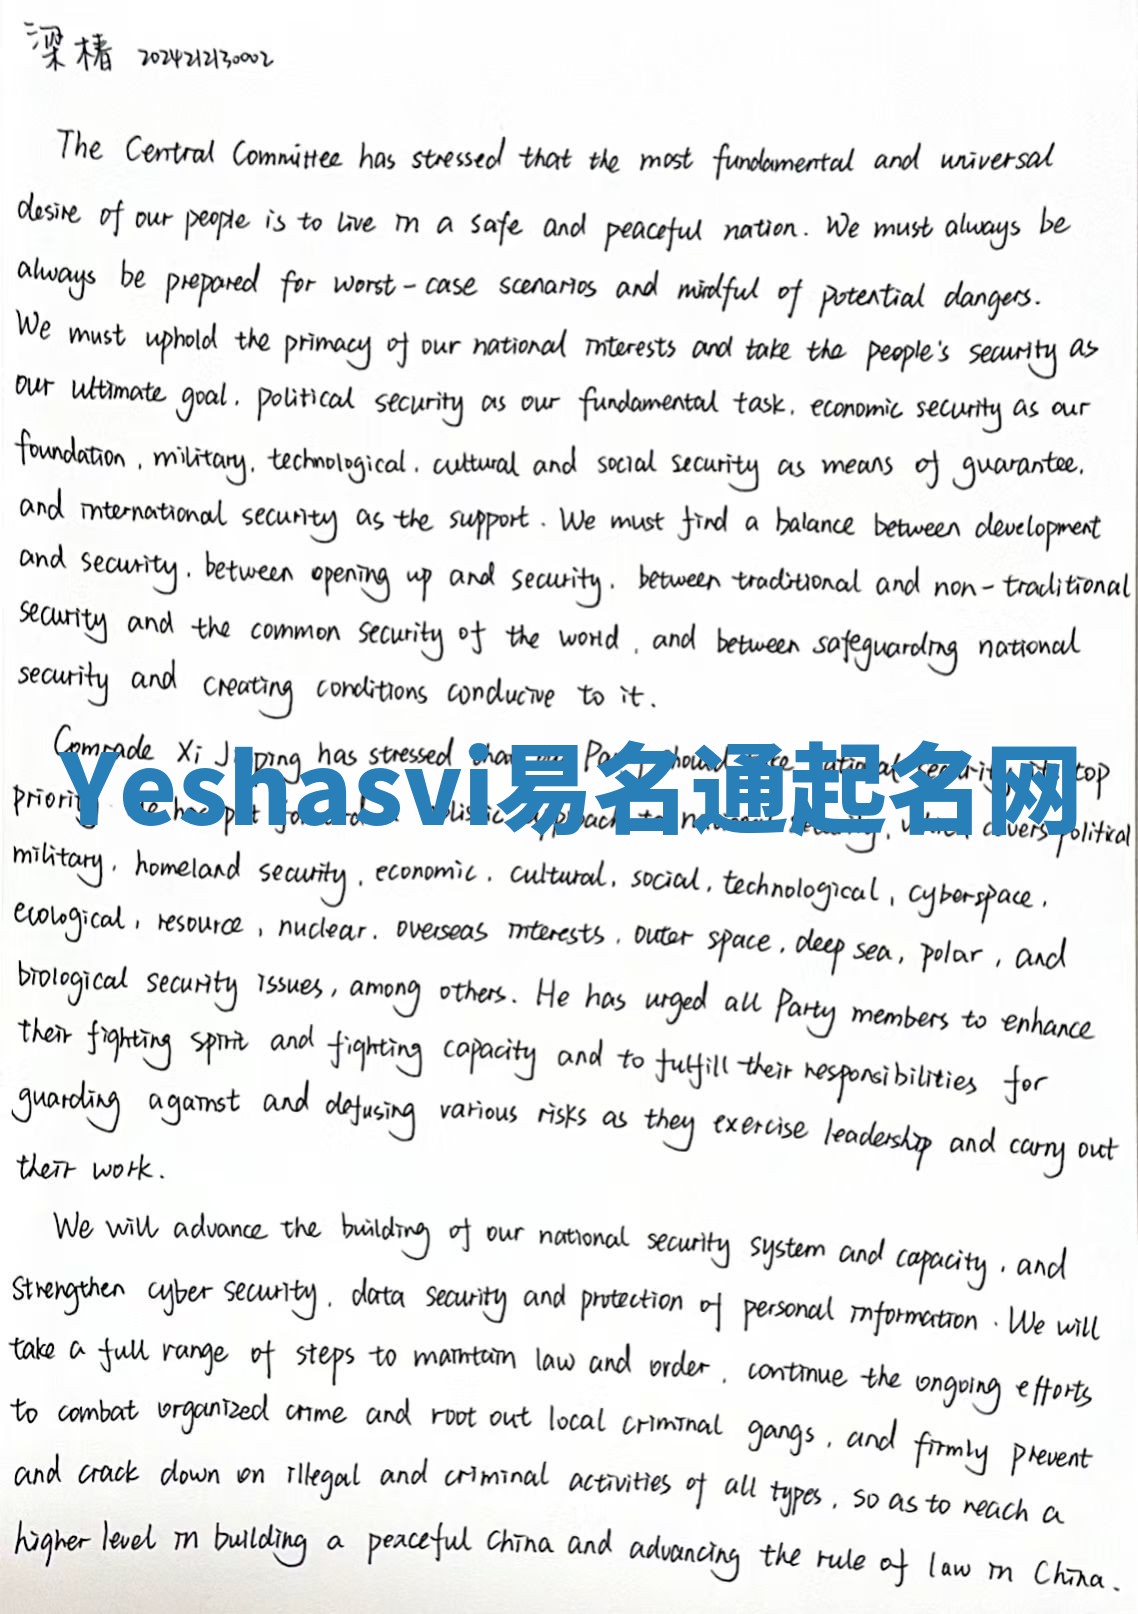 梁椿 2024212130002
The Central Committee has stressed that the most fundamental and universal
desire of our people is to live in a safe and peaceful nation. We must always be
always be prepared for worst-case scenarios and mindful of potential dangers.
We must uphold the primacy of our national interests and take the people's security as
our ultimate goal, political security as our fundamental task, economic security as our
foundation, military, technological, cultural and social security as means of guarantee,
and international security as the support. We must find a balance between development
and security, between opening up and security, between traditional and non-traditional
security and the common security of the world, and between safeguarding national
security and creating conditions conducive to it.
Comrade Xi Jinping has stressed that Party should national security top
Yeshasvi易名通起名网
priority put forward holistic approach to national security, which covers political
military, homeland security, economic, cultural, social, technological, cyberspace,
ecological, resource, nuclear, overseas interests, outer space, deep sea, polar, and
biological security issues, among others. He has urged all Party members to enhance
their fighting spirit and fighting capacity and to fulfill their responsibilities for
guarding against and defusing various risks as they exercise leadership and carry out
their work.
We will advance the building of our national security system and capacity, and
strengthen cyber security, data security and protection of personal information. We will
take a full range of steps to maintain law and order, continue the ongoing efforts
to combat organized crime and root out local criminal gangs, and firmly prevent
and crack down on illegal and criminal activities of all types, so as to reach a
higher level in building a peaceful China and advancing the rule of law in China.